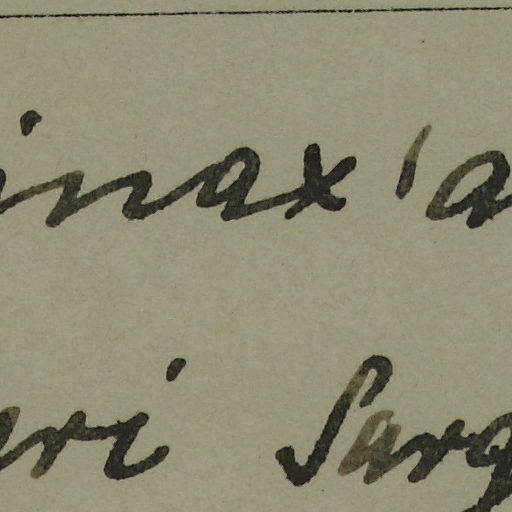 inax'a
eri Sarg